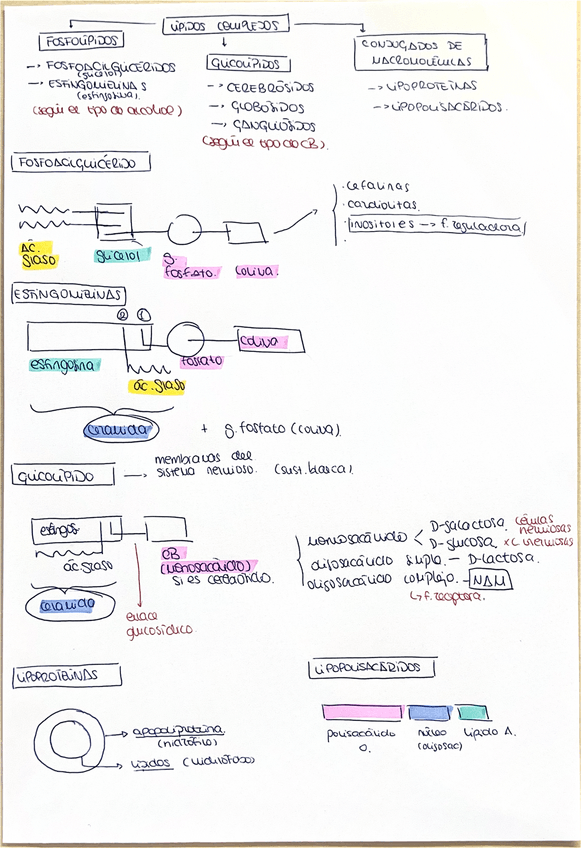 LÍPIDOS COMPLEJOS
FOSFOLÍPIDOS
→ FOSFOACILGLICÉRIDOS
(glicerol)
→ ESFINGOMIELINAS
(esfingosina)
(según el tipo de alcohol)
GLICOLÍPIDOS
→ CEREBRÓSIDOS
→ GLOBÓSIDOS
→ GANGLIÓSIDOS
(según el tipo de CB).
CONJUGADOS DE
MACROMOLÉCULAS
→ LIPOPROTEÍNAS
→ LIPOPOLISACÁRIDOS.
FOSFOACILGLICÉRIDO
ÁC.
graso
glicerol
g.
fosfato
colina.
· cefalinas
· cardiolipinas
· inositoles → f. reguladora
ESFINGOMIELINAS
② ①
esfingosina
ác. graso
fosfato
colina
ceramida + g. fosfato (colina).
GLICOLÍPIDO → membranas del
sistema nervioso. (sust. blanca).
esfingos
ác. graso
ceramida
enlace
glucosídico.
CB
(monosacárido)
si es cerebrósido.
monosacárido < D-galactosa. células nerviosas
D-glucosa. x C nerviosas
oligosacárido simple. — D-lactosa.
oligosacárido complejo. — NAM
↳ f. receptora.
LIPOPROTEÍNAS
→ apopolipoproteína
(hidrófilo)
→ lípidos (hidrófobo)
LIPOPOLISACÁRIDOS
polisacárido
O.
núcleo
(oligosac)
lípido A.